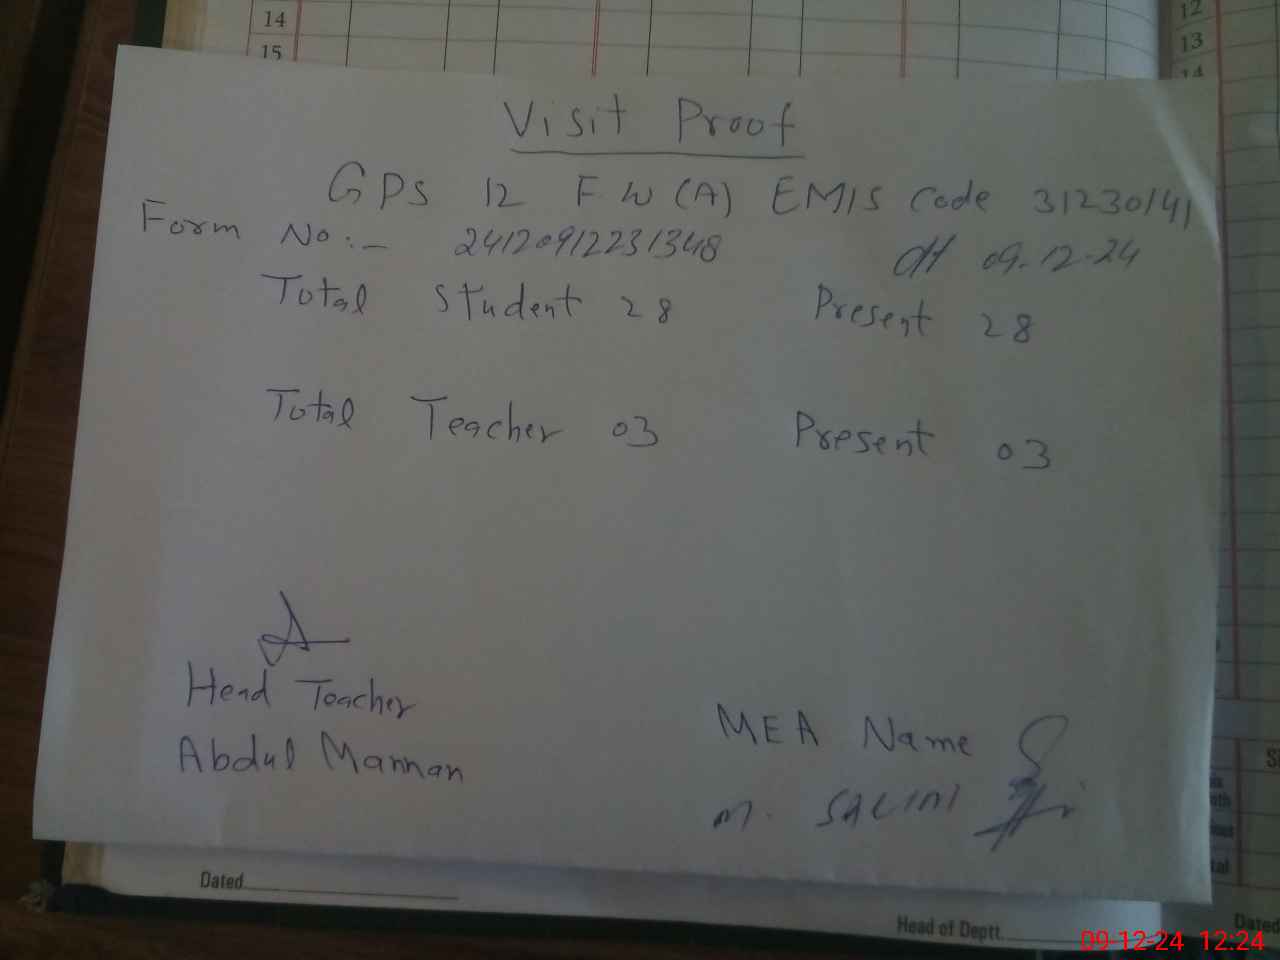 14
15
12
13
14
Visit Proof
GPS 12 F W (A) EMIS Code 31230141
Form No :- 24120912231348 dt 09-12-24
Total Student 28 Present 28
Total Teacher 03 Present 03
Head Teacher
Abdul Mannan
MEA Name
M. SALIM
Dated
Head of Deptt.
Dated
09-12-24 12:24